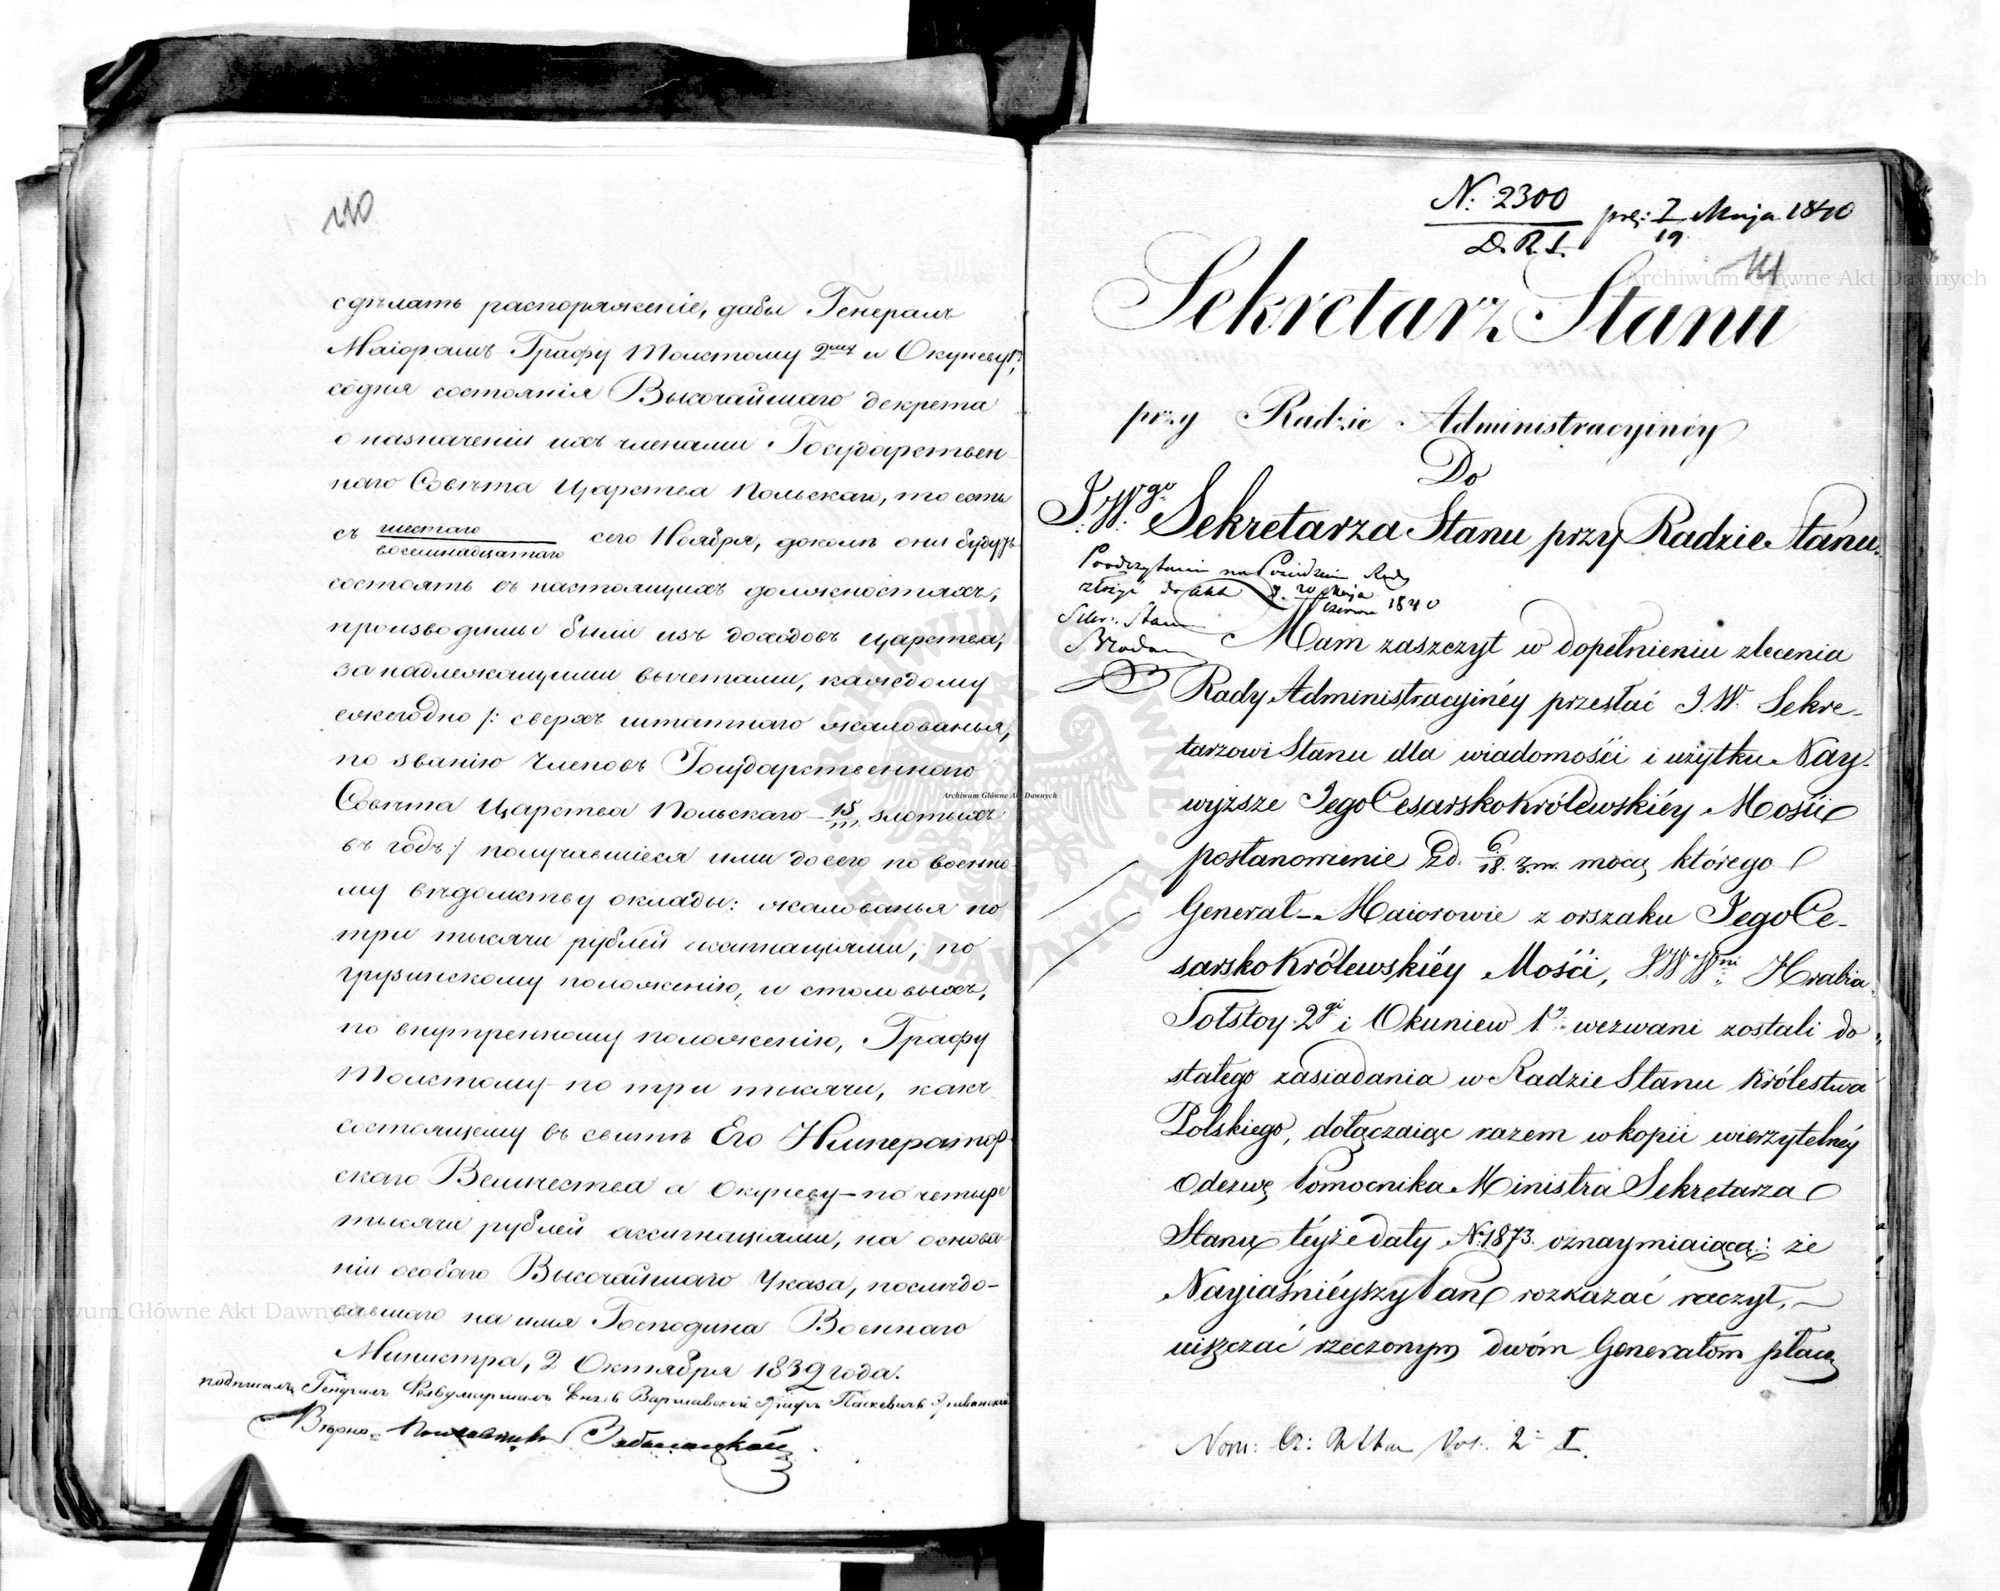 110
сдѣлать распоряженіе, дабы Генералъ
Маіорамъ Графу Толстому 2му и Окуневу,
со дня состоянія Высочайшаго декрета
о назначеніи ихъ членами Государствен
наго Совѣта Царства Польскаго, то есть
съ шестаго/восемнадцатаго сего Ноября, доколѣ они будутъ
состоять въ настоящихъ должностяхъ,
производимы были изъ доходовъ Царства,
за надлежащими вычетами, каждому
ежегодно /: сверхъ штатнаго жалованья,
по званію Членовъ Государственнаго
Совѣта Царства Польскаго 15/m злотыхъ
въ годъ :/ получавшіеся ими до сего по военно
му вѣдомству оклады: жалованья по
три тысячи рублей ассигнаціями, по
грузинскому положенію, и столовыхъ,
по внутреннему положенію, Графу
Толстому по три тысячи, какъ
состоящему въ свитѣ Его Император
скаго Величества а Окуневу - по четыре
тысячи рублей ассигнаціями, на основа
ніи особаго Высочайшаго Указа, послѣдо-
вавшаго на имя Господина Военнаго
Министра, 2 Октября 1839 года.
подписалъ Генералъ Фельдмаршалъ Князь Варшавскій Графъ Паскевичъ Эриванскій
Вѣрно:
N: 2300 / D. R. S. prę: 7/19 Maja 1840
111
Sekretarz Stanu
przy Radzie Administracyinéy
Do
J.W.go Sekretarza Stanu przy Radzie Stanu.
Poodczytaniu na Posiedzeniu Rady
złożyć do akt d. 20 Maja / Czerwca 1840
Sekr: Stanu
Mam zaszczyt w dopełnieniu zlecenia
Rady Administracyinéy przesłać J.W. Sekre-
tarzowi Stanu dla wiadomości i użytku Nay-
wyższe Jego Cesarsko Królewskiéy Mości
postanowienie Zd. 6/18. z.m. mocą którego
Generał-Maiorowie z orszaku Jego Ce-
sarsko Królewskiéy Mości, JWWni Hrabia
Tołstoy 2gi i Okuniew 1y wezwani zostali do
stałego zasiadania w Radzie Stanu Królestwa
Polskiego, dołączaiąc razem w kopii wierzytelnéy
Odezwę Pomocnika Ministra Sekretarza
Stanu téyże daty No 1873. oznaymiaiącą: że
Nayiaśniéyszy Pan rozkazać raczył,
uiszczać rzeczonym dwóm Generałom płacę
Vol: 2 I.
Archiwum Główne Akt Dawnych
Archiwum Główne Akt Dawnych
Archiwum Główne Akt Dawnych
ARCHIWUM GŁÓWNE AKT DAWNYCH